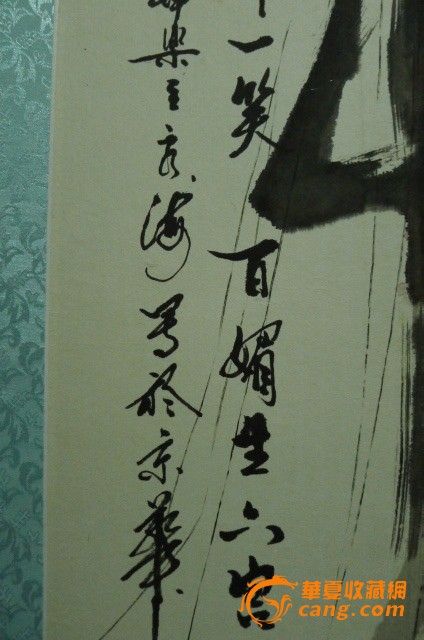 一笑百媚生六宫
樂海写於京華
華夏收藏網
cang.com